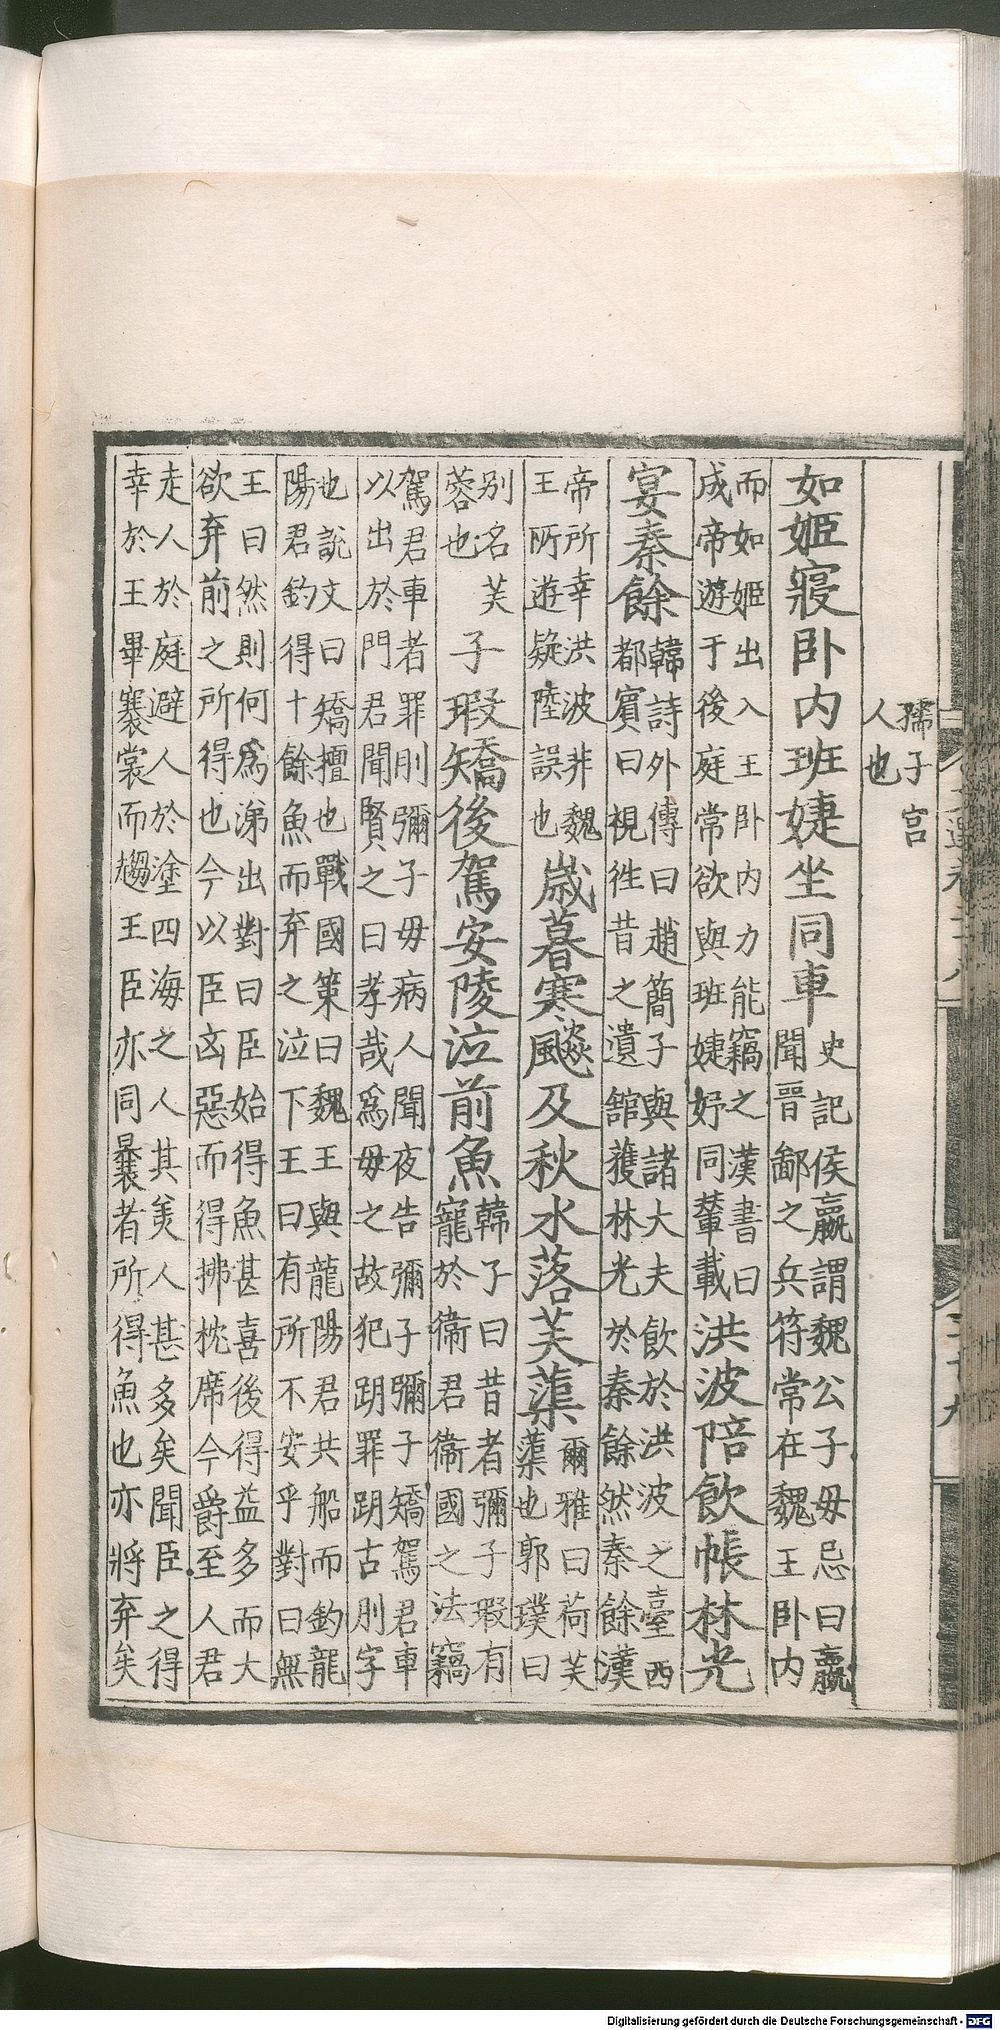 孺子宫
人也
如姬寢卧内班婕坐同車
史記侯嬴謂魏公子毋忌曰嬴
聞晉鄙之兵符常在魏王卧内
而如姬出入王卧内力能竊之漢書曰
成帝遊于後庭常欲與班婕妤同輦載
洪波陪飲帳林光
宴秦餘
韓詩外傳曰趙簡子與諸大夫飲於洪波之臺西
都賓曰視徃昔之遺舘獲林光於秦餘然秦餘漢
帝所幸洪波非魏
王所遊疑陸誤也
歲暮寒飈及秋水落芙蕖
爾雅曰荷芙
蕖也郭璞曰
别名芙
蓉也
子瑕矯後駕安陵泣前魚
韓子曰昔者彌子瑕有
寵於衞君衞國之法竊
駕君車者罪刖彌子毋病人聞夜告彌子彌子矯駕君車
以出於門君聞賢之曰孝哉爲毋之故犯跀罪跀古刖字
也說文曰矯擅也戰國策曰魏王與龍陽君共船而釣龍
陽君釣得十餘魚而弃之泣下王曰有所不安乎對曰無
王曰然則何爲涕出對曰臣始得魚甚喜後得益多而大
欲弃前之所得也今以臣凶惡而得拂枕席今爵至人君
走人於庭避人於塗四海之人其美人甚多矣聞臣之得
幸於王畢褰裳而趨王臣亦同曩者所得魚也亦將弃矣
Digitalisierung gefördert durch die Deutsche Forschungsgemeinschaft - DFG